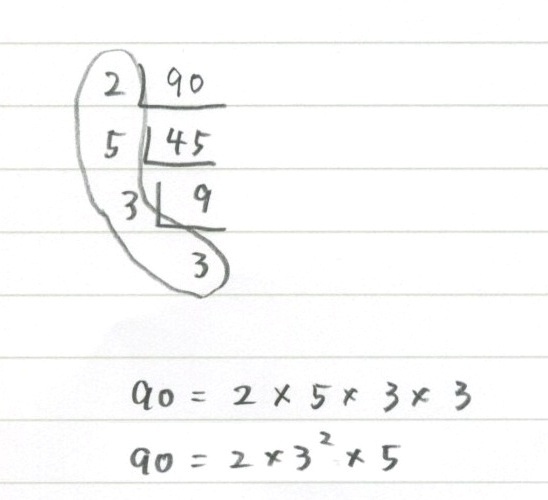 2 90
5 45
3 9
3
90 = 2 × 5 × 3 × 3
90 = 2 × 3² × 5